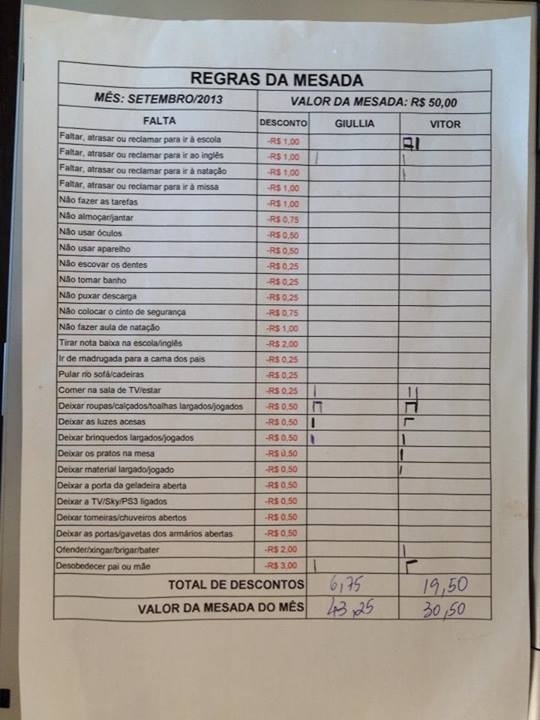 REGRAS DA MESADA
MÊS: SETEMBRO/2013 VALOR DA MESADA: R$ 50,00
FALTA DESCONTO GIULLIA VITOR
Faltar, atrasar ou reclamar para ir à escola -R$ 1,00
Faltar, atrasar ou reclamar para ir ao inglês -R$ 1,00
Faltar, atrasar ou reclamar para ir à natação -R$ 1,00
Faltar, atrasar ou reclamar para ir à missa -R$ 1,00
Não fazer as tarefas -R$ 1,00
Não almoçar/jantar -R$ 0,75
Não usar óculos -R$ 0,50
Não usar aparelho -R$ 0,50
Não escovar os dentes -R$ 0,25
Não tomar banho -R$ 0,25
Não puxar descarga -R$ 0,25
Não colocar o cinto de segurança -R$ 0,75
Não fazer aula de natação -R$ 1,00
Tirar nota baixa na escola/inglês -R$ 2,00
Ir de madrugada para a cama dos pais -R$ 0,25
Pular no sofá/cadeiras -R$ 0,25
Comer na sala de TV/estar -R$ 0,25
Deixar roupas/calçados/toalhas largados/jogados -R$ 0,50
Deixar as luzes acesas -R$ 0,50
Deixar brinquedos largados/jogados -R$ 0,50
Deixar os pratos na mesa -R$ 0,50
Deixar material largado/jogado -R$ 0,50
Deixar a porta da geladeira aberta -R$ 0,50
Deixar a TV/Sky/PS3 ligados -R$ 0,50
Deixar torneiras/chuveiros abertos -R$ 0,50
Deixar as portas/gavetas dos armários abertas -R$ 0,50
Ofender/xingar/brigar/bater -R$ 2,00
Desobedecer pai ou mãe -R$ 3,00
TOTAL DE DESCONTOS 6,75 19,50
VALOR DA MESADA DO MÊS 43,25 30,50